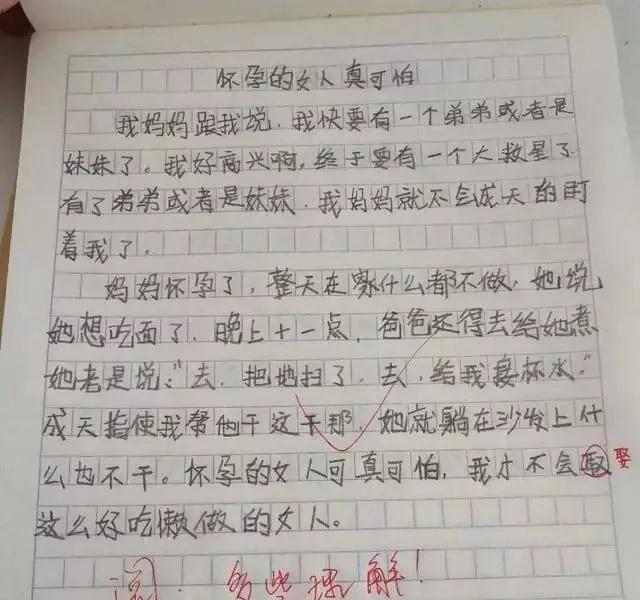 怀孕的女人真可怕
我妈妈跟我说，我快要有一个弟弟或者是
妹妹了。我好高兴啊，终于要有一个大救星了
有了弟弟或者是妹妹，我妈妈就不会成天的盯
着我了。
妈妈怀孕了，整天在家什么都不做，她说
她想吃面了，晚上十一点，爸爸还得去给她煮
她老是说："去，把地扫了，去，给我接杯水。"
成天指使我帮他干这干那，她就躺在沙发上什
么也不干。怀孕的女人可真可怕，我才不会取 娶
这么好吃懒做的女人。
阅 多些理解！